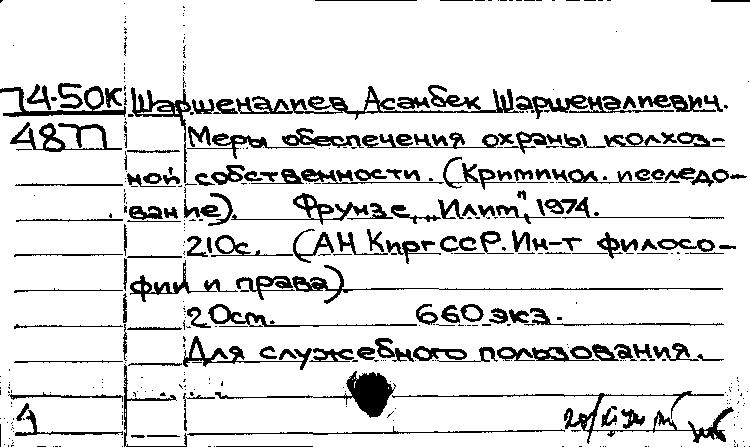 74-50К Шаршеналиев, Асанбек Шаршеналиевич.
4877 Меры обеспечения охраны колхоз-
ной собственности. (Криминол. исследо-
вание). Фрунзе, „Илим", 1974.
210с. (АН КиргССР. Ин-т филосо-
фии и права).
20см. 660 экз.
Для служебного пользования.
4